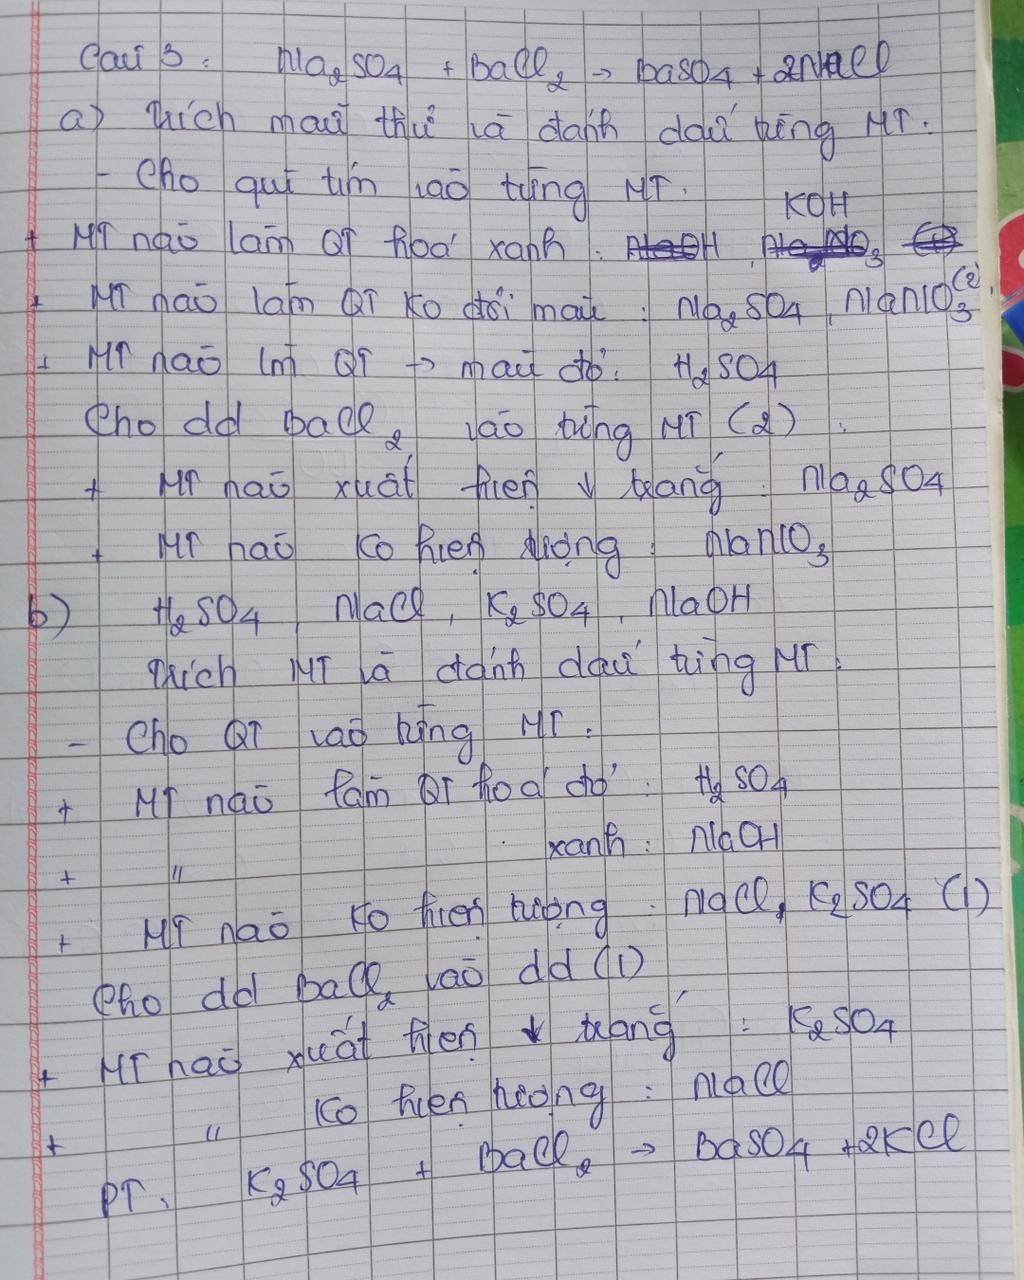 Câu 3: Na₂SO₄ + BaCl₂ → BaSO₄ + 2NaCl
a) Trích mẫu thử và đánh dấu từng MT.
- Cho quì tím vào từng MT.
KOH
+ MT nào làm QT hoá xanh : NaOH
+ MT nào làm QT ko đổi màu : Na₂SO₄, NaNO₃ (2)
+ MT nào lm QT → màu đỏ: H₂SO₄
Cho dd BaCl₂ vào từng MT (2) :
+ MT nào xuất hiện ↓ trắng : Na₂SO₄
+ MT nào ko hiện tượng : NaNO₃
b) H₂SO₄, NaCl, K₂SO₄, NaOH
Trích MT và đánh dấu từng MT.
- Cho QT vào từng MT :
+ MT nào làm QT hoá đỏ : H₂SO₄
+ " xanh : NaOH
+ MT nào ko hiện tượng : NaCl, K₂SO₄ (1)
Cho dd BaCl₂ vào dd (1)
+ MT nào xuất hiện ↓ trắng : K₂SO₄
+ " ko hiện tượng : NaCl
PT: K₂SO₄ + BaCl₂ → BaSO₄ + 2KCl